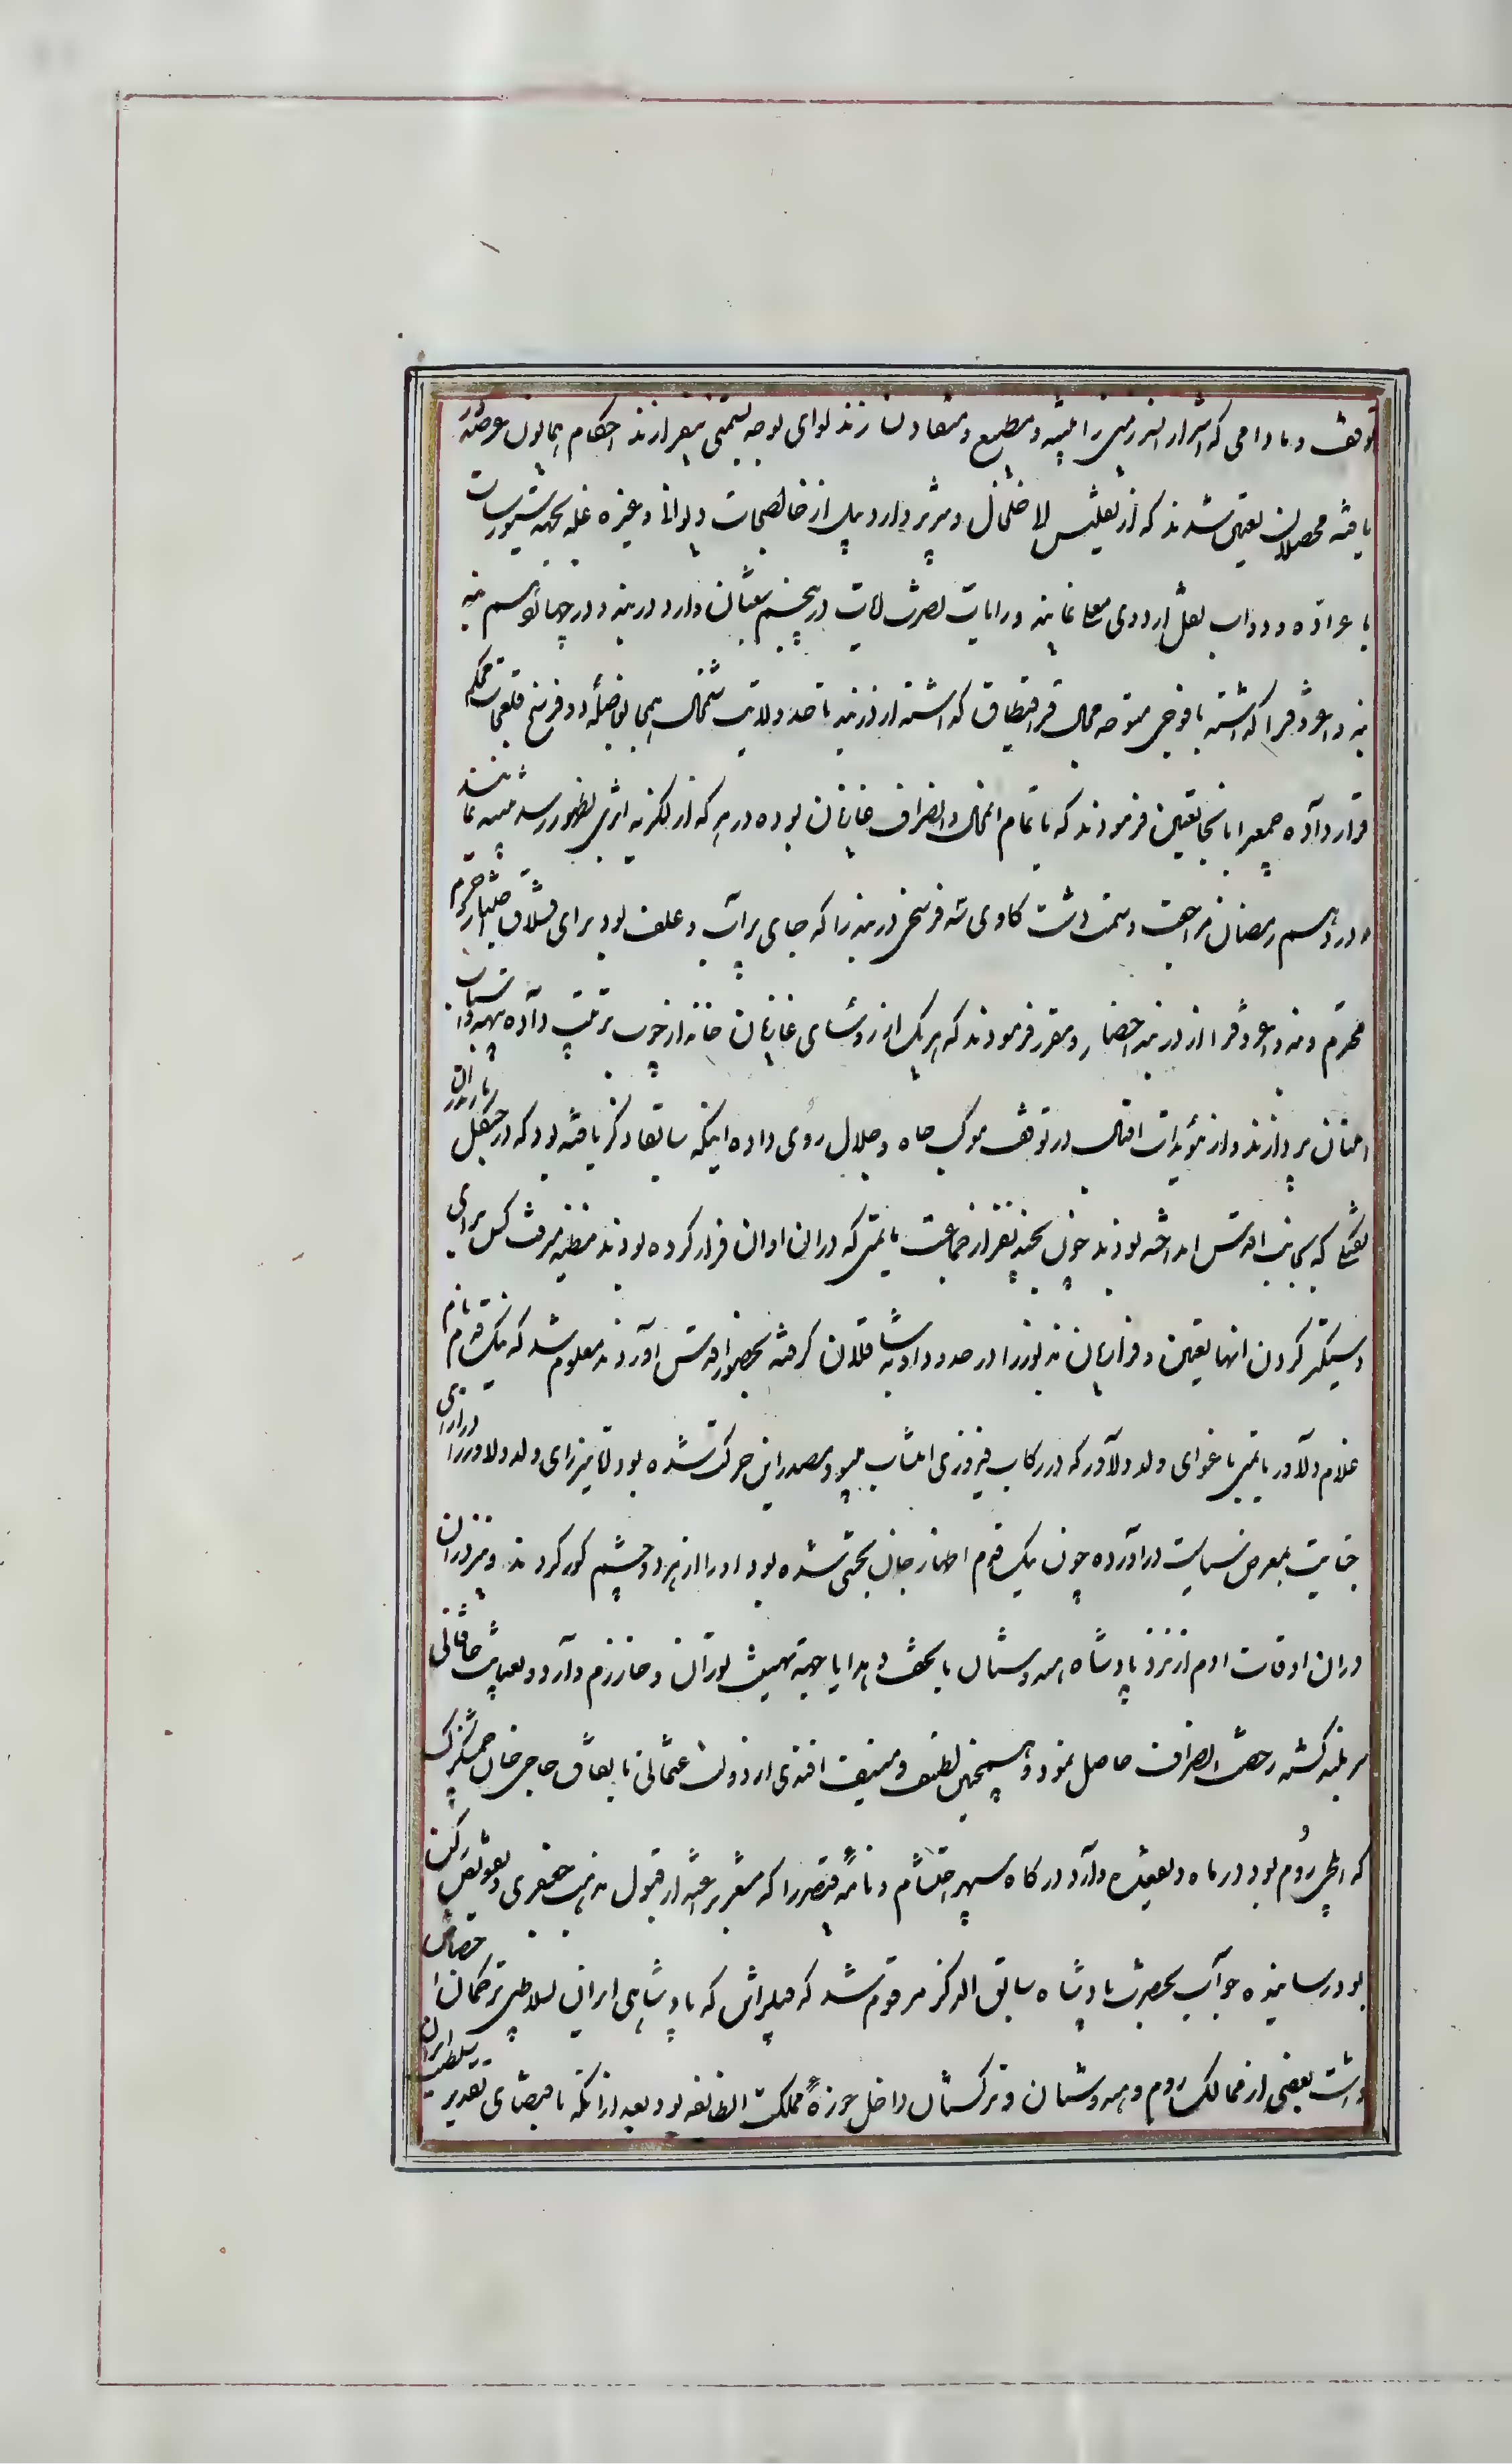 توقف و مادامی که اشرار البرز را تنبیه و مطیع و منقاد نسازند لوای توجه بسمتی نیفرازند احکام همایون عرصدور
یافته محصلان تعیین شدند که از تفلیس الی خلخال و تبریز و اردبیل از خالصجات دیوانی و غیره غله بجهة سیورسات
با عراده و دواب نقل اردوی معلی نمایند و رایات نصرت آیات در پنجم شعبان وارد دربند و در چهاردهم بنه
بنه و اعروق را گذاشته با فوجی متوجه محال قراقیطاق گشته از دربند تا حد ولایت شمخال بهمه بفاصلهٔ دو فرسخ قلعجات محکم
قرار داده جمعی را بانجا تعیین فرمودند که با تمام آن محال و اطراف غازیان بوده در هر که از لکزیه اثری بظهور رسد تنبیه نمایند
و در دهم رمضان مراجعت و سمت دشت کاوی سه فرسخی دربند را که جای پر آب و علف بود برای قشلاق اختیار و حرم
محترم و بنه و اعروق را از دربند احضار و مقرر فرمودند که هر یک از رؤسای غازیان خانه از چوب ترتیب داده بتهیهٔ اسباب
امتنان پردازند و از مؤیدات اقبال در توقف موکب جاه و جلال روی داده اینکه سابقا ذکر یافته بود که در جنگل مازندران
تفنگی که بجانب اقدس انداخته بودند چون بچند نفر از جماعت تایمنی که در آن اوان فرار کرده بودند مظنه میرفت کس برای
دستگیر کردن آنها تعیین و فراریان مذبور را در حدود ادبه شاقلان گرفته بحضور اقدس آوردند معلوم شد که نیک قدم نام
غلام دلاور تایمنی باغوای ولد دلاور که در رکاب فیروزی انتساب میبود مصدر این حرکت شده بود آقا میرزای ولد دلاور را در ازای
جنایت بمعرض سیاست درآورده چون نیک قدم اظهار جان بخشی شده بود او را از هر دو چشم کور کردند و نیز در آن
در آن اوقات آدم از نزد پادشاه هندوستان با تحف و هدایا جهة تهنیت توران و خوارزم وارد و بعنایت خاقانی
سربلند گشته رخصت انصراف حاصل نمود و همچنین لطیف و منیف افندی از دولت عثمانی باتفاق حاجی خان چمشگزک
که ایلچی روم بود در ماه ذیقعده وارد درگاه سپهر احتشام و نامهٔ قیصر را که مشعر بر عذر از قبول مذهب جعفری و تفویض رکن
بود رسانیده جواب بحضرت پادشاه سابق الذکر مرقوم شد که قبل از این که پادشاهی ایران بسلاطین ترکمان اختصاص
داشت بعضی از ممالک روم و هندوستان و ترکستان داخل حوزهٔ مملکت آنطایفه بود بعد از آنکه باقتضای تقدیر سلطنت ایران